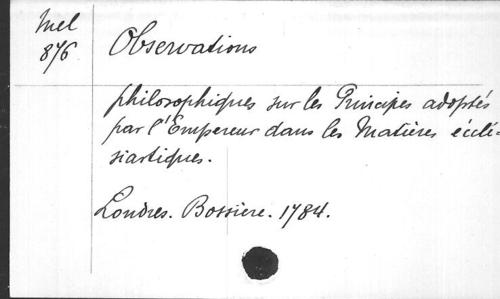 Mel
876
Observations
philosophiques sur les Principes adoptés
par l'Empereur dans les Matières écclé-
siastiques.
Londres. Bossiere. 1784.